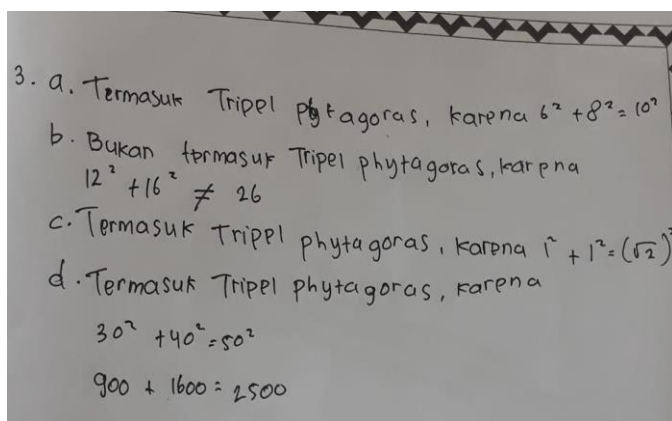 3. a. Termasuk Tripel phytagoras, karena 6² + 8² = 10²
b. Bukan termasuk Tripel phytagoras, karena
12² + 16² ≠ 26
c. Termasuk Tripel phytagoras, karena 1² + 1² = (√2)²
d. Termasuk Tripel phytagoras, karena
30² + 40² = 50²
900 + 1600 = 2500